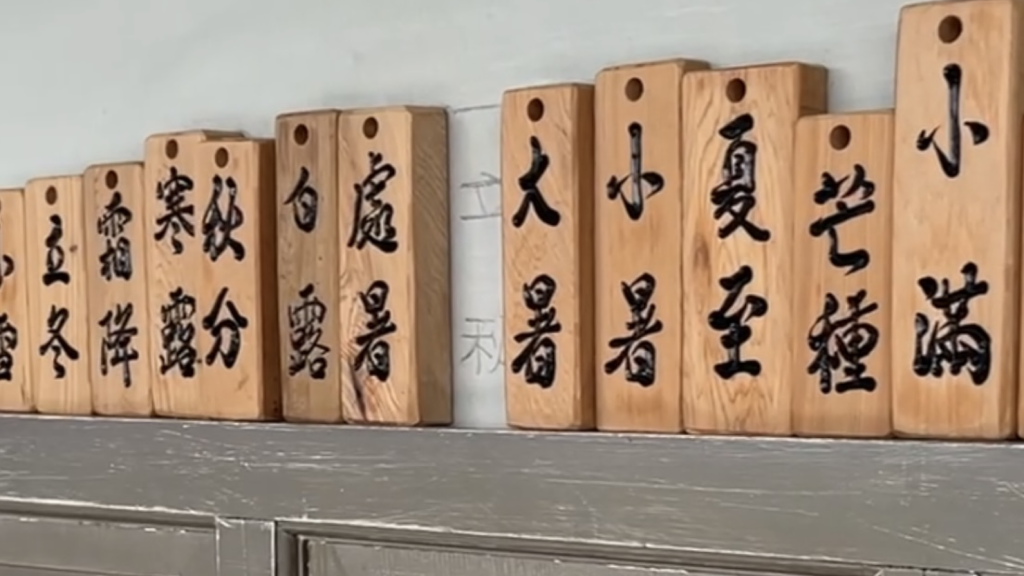 小滿
芒種
夏至
小暑
大暑
立秋
處暑
白露
秋分
寒露
霜降
立冬